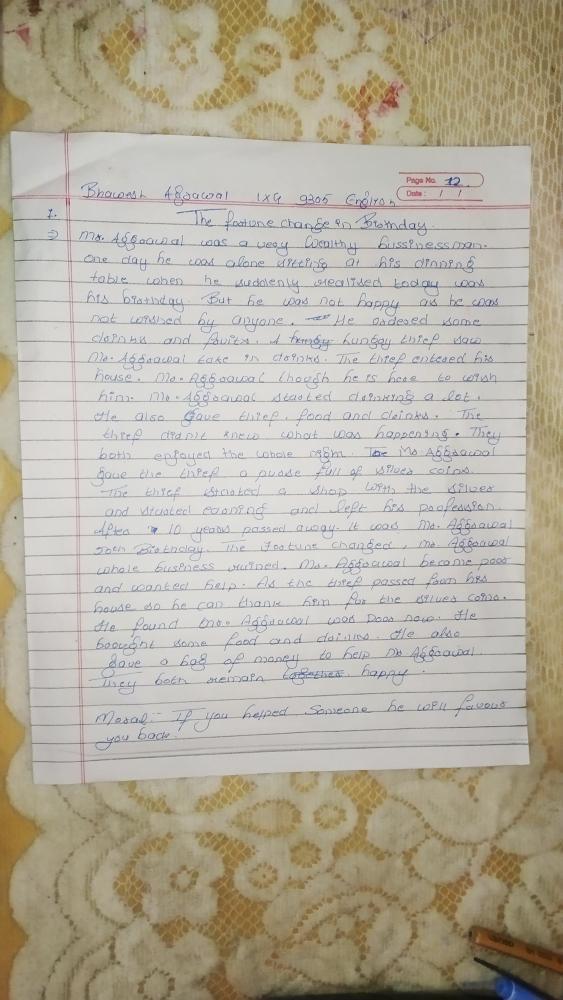 Page No. 12
Date: / /
Bhawesh Aggrawal IXG 9305 English
1.
The fortune change in Birthday.
⇒ Mr. Aggrawal was a very wealthy bussinessman.
one day he was alone sitting at his dinning
table when he suddenly realised today was
his birthday. But he was not happy as he was
not wished by anyone. He ordered some
drinks and fruits. A hungry thief saw
Mr. Aggrawal take in drinks. The thief entered his
house. Mr. Aggrawal though he is here to wish
him. Mr. Aggrawal started drinking a lot.
He also gave thief, food and drinks. The
thief didn't knew what was happening. They
both enjoyed the whole nigh. Mr Aggrawal
gave the thief a purse full of silver coins.
The thief started a shop with the silver
and started earning and left his profession.
After 10 years passed away. It was Mr. Aggrawal
50th Birthday. The fortune changed, Mr. Aggrawal
whole business ruined. Mr. Aggrawal become poor
and wanted help. As the thief passed from his
house so he can thank him for the silver coins.
He found Mr. Aggrawal was poor now. He
bought some food and drinks. He also
gave a bag of money to help Mr Aggrawal.
They both remain together happy.
Moral:- If you helped someone he will favour
you back.